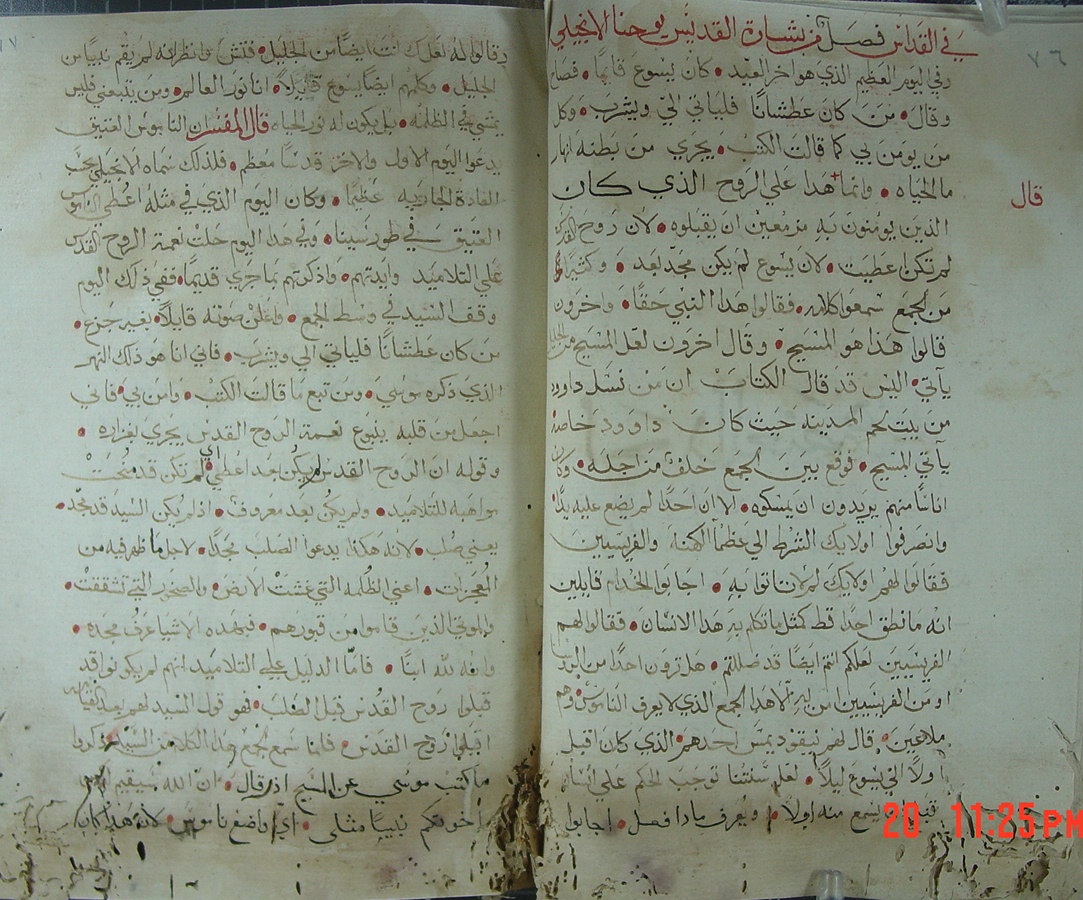 في القداس فصل من بشارة القديس يوحنا الانجيلي
٧٦
وفي اليوم العظيم الذي هو اخر العيد • كان يسوع قايما • فصاح
وقال • من كان عطشانا فلياتي الي ويشرب • وكل
من يومن بي كما قالت الكتب • يجري من بطنه انهار
ما الحياه • وانما هدا على الروح الذي كان
قال
الذين يومنون به مزمعين ان يقبلوه • لان روح القدس
لم تكن اعطيت • لان يسوع لم يكن مجد بعد • وكثير
من الجمع سمعوا كلامه • فقالوا هدا النبي حقا • واخرون
قالوا هذا هو المسيح • وقال اخرون لعل المسيح من الجليل
ياتي • اليس قد قال الكتاب ان من نسل داوود
من بيت لحم المدينه حيث كان داوود خاصه
ياتي المسيح • فوقع بين الجمع خلف من اجله • وكان
اناسا منهم يريدون ان يمسكوه • الا ان احدا لم يضع عليه يدا
وانصرفوا اولايك الشرط الي عظما الكهنه والفريسيين
فقالوا لهم اولايك لم لا تاتوا به • اجابوا الخدام قايلين
انه ما نطق احدا قط كمثل ما تكلم به هدا الانسان • فقالوا لهم
الفريسيين لعلكم انتم ايضا قد ضللتم • هل ترون احدا من
او من الفريسيين امن به الا هدا الجمع الذي لا يعرف الناموس وهم
ملاعين • قال لهم نيقوديمس احدهم • الذي كان اقبل
اولا الي يسوع ليلا • لعل سنتنا توجب الحكم على انسان
يسمع منه اولا • ويعرف مادا فصل • اجابوا
20 11:25PM
وقالوا له لعلك انت ايضا من الجليل • فتش وانظر انه لم يقم نبيا من
الجليل • وكلمهم ايضا يسوع قايلا • انا نور العالم • ومن يتبعني فليس
يمشي في الظلمه • بل يكون له نور الحياه قال المفسر ان الناموس العتيق
يدعوا اليوم الاول والاخر قدسا معظم • فلذلك سماه الانجيلي بحسب
العادة الجاريه عظيما • وكان اليوم الذي في مثله اعطي الناموس
العتيق في طور سينا • وفي هدا اليوم حلت نعمة الروح القدس
علي التلاميد وايدتهم • واذكرتهم بما جري قديما • ففي ذلك اليوم
وقف السيد في وسط الجمع • واعلن صوته قايلا • بغير جزع •
من كان عطشانا فلياتي الي ويشرب • فاني انا هو ذلك النهر
الذي ذكره موسي • ومن تبع ما قالت الكتب • وامن بي • فاني
اجعل من قلبه ينبوع نعمة الروح القدس يجري بغزاره •
وقوله ان الروح القدس لم يكن بعد اعطي • اي لم تكن قد منحت
مواهبه للتلاميد • ولم يكن بعد معروف • اذ لم يكن السيد قد مجد •
يعني صلب • لانه هكذا يدعوا الصلب مجدا • لاجل ما ظهر فيه من
المعجزات • اعني الظلمه التي غشت الارض • والصخور التي تشققت •
والموتي الذين قاموا من قبورهم • فبهذه الاشيا عرف مجده •
وانه لله ابنا • فاما الدليل علي التلاميد انهم لم يكونوا قد
قبلوا روح القدس قبل الصلب • فهو قول السيد لهم بعد القيامه
اقبلوا روح القدس • فلما سمع الجمع هدا الكلام من السيد • ذكروا
ما كتب موسي عن المسيح اذ قال • ان الله سيقيم لكم
اخوتكم نبيا مثلي • اي واضع ناموس • لانه هدا كان